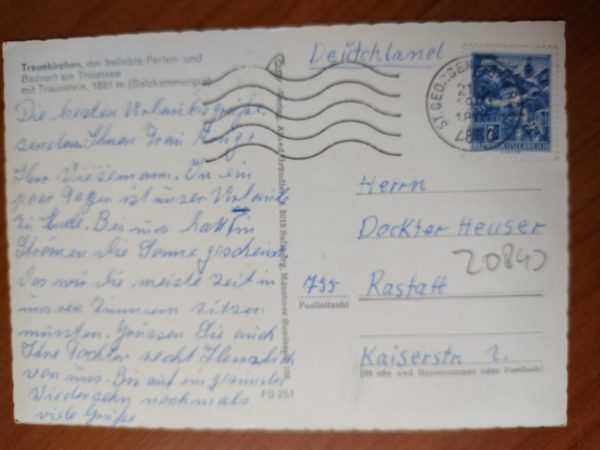 Traunkirchen, der beliebte Ferien- und
Badeort am Traunsee
mit Traunstein, 1691 m (Salzkammergut)
Die besten Urlaubsgrüße
senden Ihnen Frau
Herr Diesemann. In ein
paar Tagen ist unser Urlaub
zu Ende. Bei uns hatt in
Strömen die Sonne gescheint
Das wir die meiste Zeit in
unseren Zimmern sitzen
müssten. Grüssen Sie auch
Ihre Tochter recht Herzlich
von uns. Bis auf ein gesundes
Wiedersehn nochmals
viele Grüße
FS 251
Deutchland
ST. GEORGEN
REPUBLIK ÖSTERREICH
2
Herrn
Dockter Heuser
20840
755 Rastatt
Postleitzahl
Kaiserstr 2.
(Straße und Hausnummer oder Postfach)